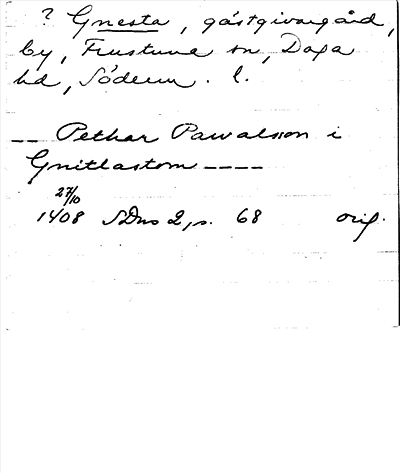 ? Gnesta, gästgivargård,
by, Frustuna sn, Daga
hd, Söderm. l.
-- Pethar Pawalsson i
Gnitlastom ----
27/10
1408 SDns 2, s. 68 orig.